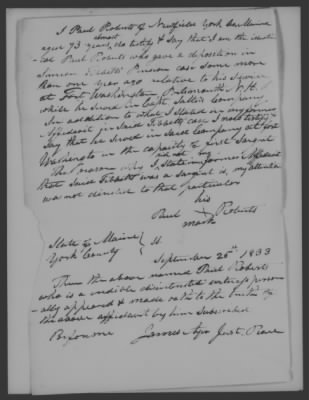 I Paul Roberts of Newfield York Co. Maine
almost
aged 73 years, do testify & say that I am the identi-
-cal Paul Roberts who gave a deposition in
Samson Tibbetts Pension case some more
than one year ago relative to his service
at Fort Washington Portsmouth N.H.
while he served in Capt. Company
In addition to what I stated in my former
Affidavit in said Tibbetts case I now testify &
say that he served in said Company at Fort
Washington in the capacity of first Sargent
The reason why I did not state in my former Affidavit
that said Tibbetts was a sargent is, my attention
was not directed to that particular
his
Paul X Roberts
mark
State of Maine
York County } ss.
September 25th 1833
Then the above named Paul Roberts
who is a credible disinterested witness person-
-ally appeared & made oath to the truth of
the above affidavit by him subscribed
Before me James Ayer Just. Peace